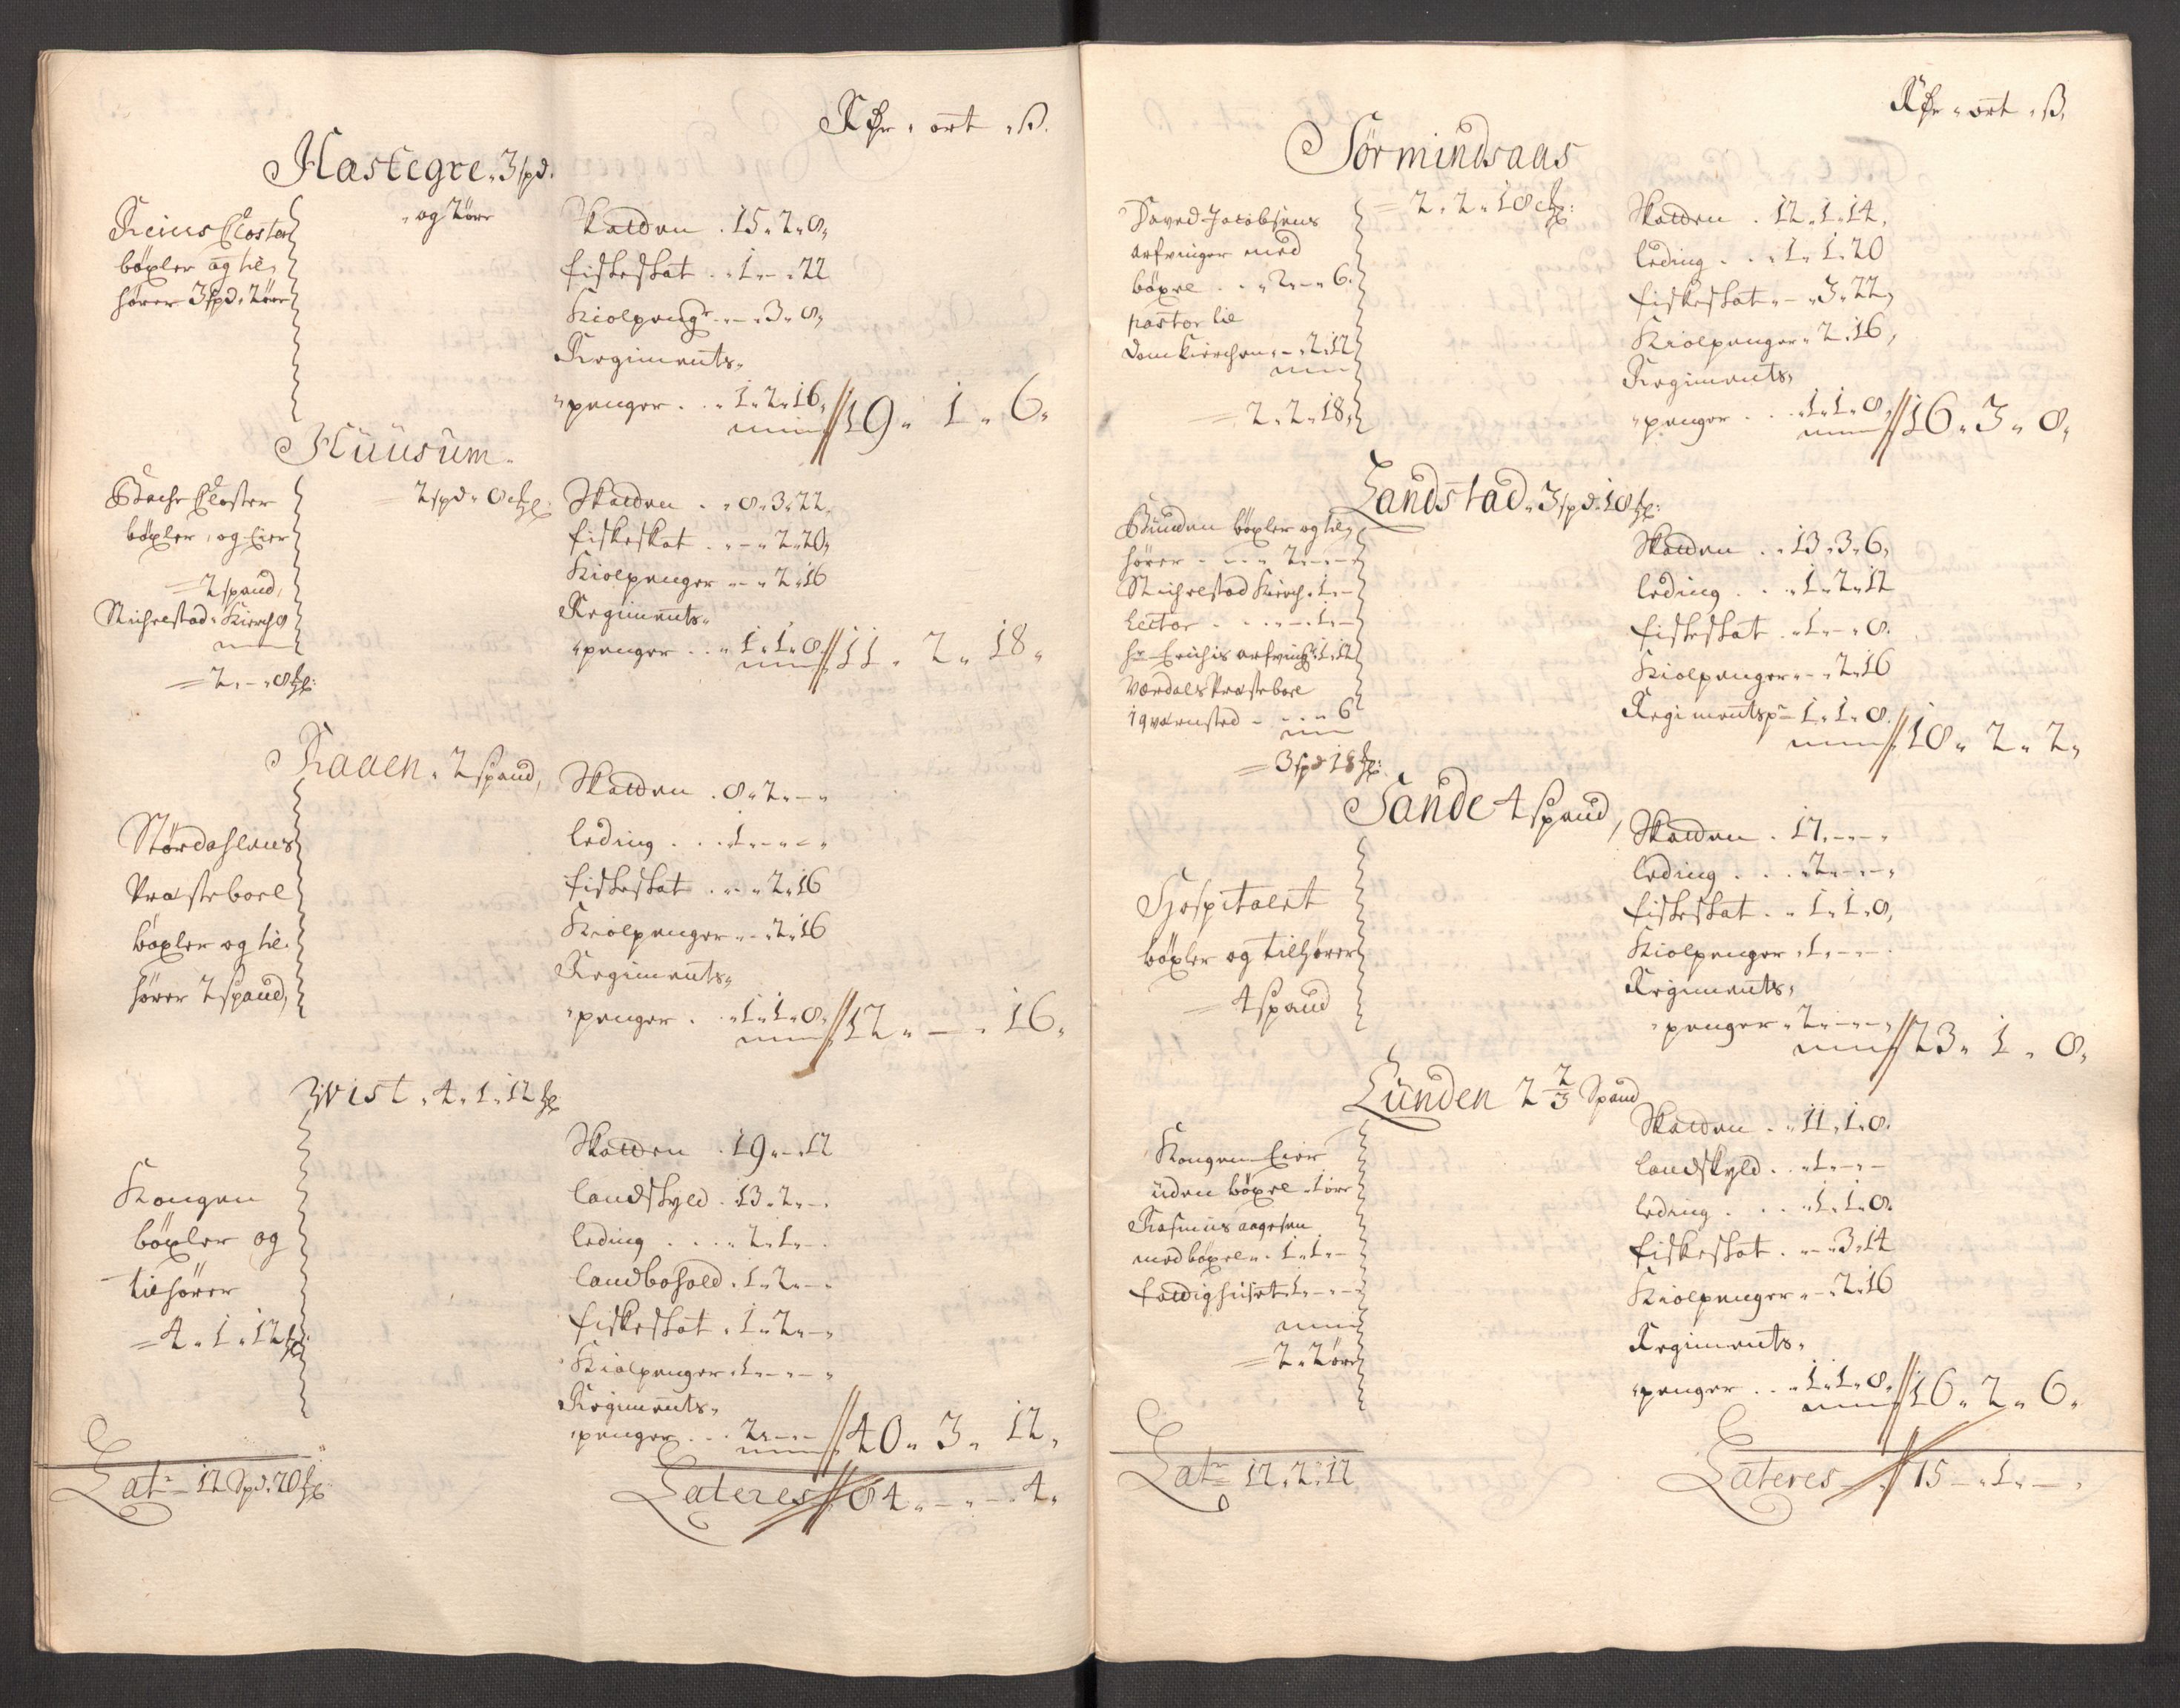 Rdr " ort " ß.
Hastegre " 3 spd.
" og 2 ører
Reins Closter
böxler og til,
hører 3 spd. 2 ører
Skatten . 15 " 2 " 8,
fiskeskat . . 1 " - " 22
Kiolpengr " - " 3 " 8,
Regiments "
" penger . . " 1 " 2 " 16 " 19 " 1 " 6 "
Huusum "
= 2 spd " 8
Bache Closter
böxler, og Eier
= 2 spand,
Stichelstad " Kirche 8
= 2 " - " 8
Skatten . " 8 " 3 " 22 "
fiskeskat . " - " 2 " 20,
Kiolpenger " - " 2 " 16
Regiments "
" penger . . " 1 " 1 " 8 " 11 " 2 " 18 "
Raaen " 2 spand,
Stördahlens
Præsteboel
böxler og til.
hører 2 spand,
Skatten . 8 " 2 " - "
leding . . . 1 " - " - "
fiskeskat . " - " 2 " 16
Kiolpenger " - " 2 " 16
Regiments "
" penger . . " 1 " 1 " 8 " 12 " - " 16 "
Wist " 4 " 1 " 12
Kongen
böxler og
tilhører
= 4 " 1 " 12
Skatten . 19 " - " 12
landskyld . 13 " 2 " - "
leding . . . " 2 " 1 " - "
landbohold . 1 " 2 " - "
fiskeskat " 1 " 2 " - "
Kiolpenger " 1 " - " - "
Regiments "
" penger . . . 2 " - " - 40 " 3 " 12 "
Latr 12 Spd " 20
Lateres 84 " - " - " 4 "
Rdr " ort " ß.
Sörmindsaas
= 2 " 2 " 18
Daved Jacobsens
arfvinger med
böxel . . " 2 " - " 6.
pastor til
Domkierchen " - " 2 " 12
= 2 " 2 " 18,
Skatten . 12 " 1 " 14,
leding . . " 1 " 1 " 20
fiskeskat " - " 3 " 22,
Kiolpenger " 2 " 16,
Regiments,
" penger . . . 1 " 1 " 8 " 16 " 3 " 8,
Landstad " 3 spd " 18
Bunden böxler og til,
hører - - - " 2 " - "
Stichelstad Kirch " 1 " -
Lector . . . " - " 1 " -
hr Erichis arfving " 1 " 12
Værdals Præsteboel
i qværnsted - - - " 6
= 3 spd 18
Skatten . . 13 " 3 " 6,
leding . . . 1 " 2 " 12
fiskeskat . " 1 " - " 8.
Kiolpenger " - " 2 " 16
Regimentsp - 1 " 1 " 8. 18 " 2 " 2,
Sande 4 Spand,
Hospitalet
böxler og tilhører
= 4 spand
Skatten . 17 " - " - "
leding . . . " 2 " - " - "
fiskeskat . " 1 " 1 " 8,
Kiolpenger " 1 " - " -
Regiments,
" penger " 2 " - " - 23 " 1 " 8,
Lunden 2 2/3 Spand
Kongen Eier
uden böxel 1 öre
Rasmus aagesen
med böxel " 1 " 1 " -
fattighuset 1 " - " -
= 2 " 2 öre
Skatten . . 11 " 1 " 8.
landskyld . . " 1 " - " -
leding . . . " 1 " 1 " 8.
fiskeskat . " - " 3 " 14
Kiolpenger " - " 2 " 16
Regiments "
" penger . . " 1 " 1 " 8 " 16 " 2 " 6 "
Latr 12 " 2 " 12
Lateres 75 - " 1 " - "